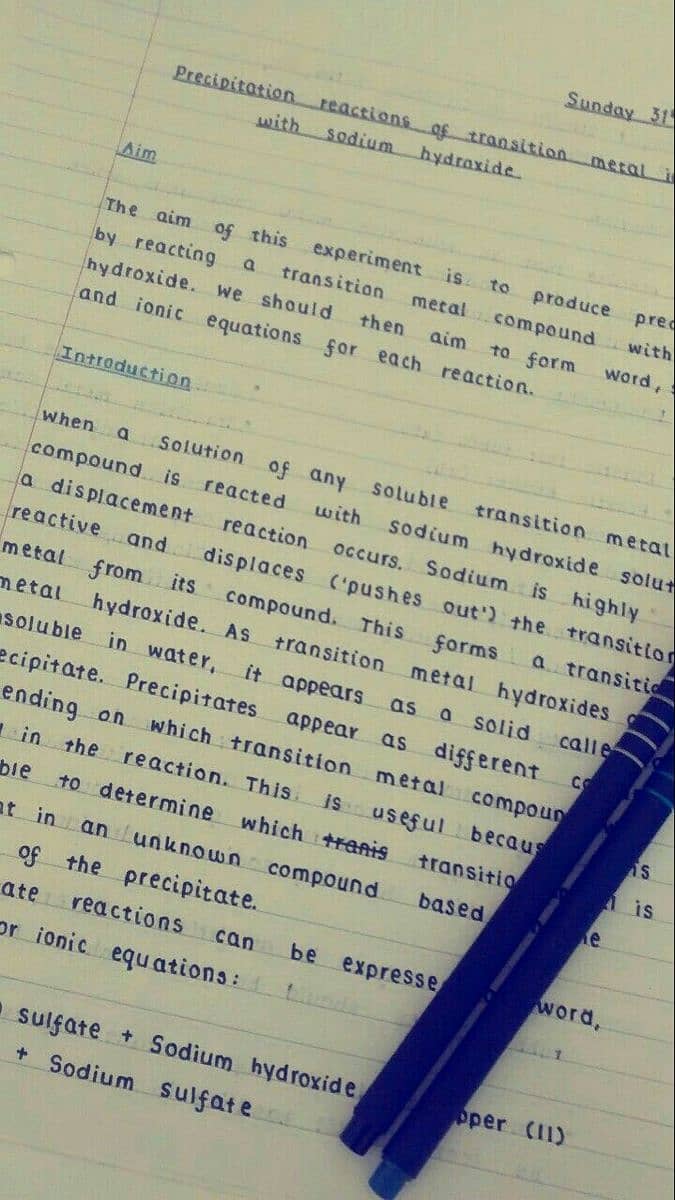 Sunday 31st
Precipitation reactions of transition metal i
with sodium hydroxide.
Aim
The aim of this experiment is to produce prec
by reacting a transition metal compound with
hydroxide. We should then aim to form word,
and ionic equations for each reaction.
Introduction
When a solution of any soluble transition metal
compound is reacted with sodium hydroxide solut
a displacement reaction occurs. Sodium is highly
reactive and displaces ('pushes out') the transition
metal from its compound. This forms a transitio
metal hydroxide. As transition metal hydroxides
nsoluble in water, it appears as a solid calle
ecipitate. Precipitates appear as different co
ending on which transition metal compoun
in the reaction. This is useful becaus is
ble to determine which tranis transitio l is
nt in an unknown compound based he
of the precipitate.
ate reactions can be expresse word,
or ionic equations:
sulfate + Sodium hydroxide pper (II)
+ Sodium sulfate